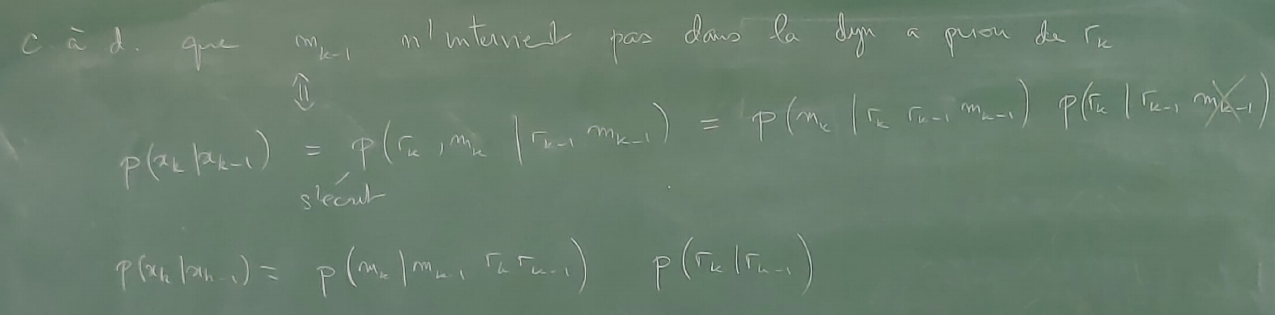 c à d. que m_{k-1} n'intervient pas dans la dyn a priori de r_k
⇕
p(x_k|x_{k-1}) = p(r_k, m_k | r_{k-1} m_{k-1}) = p(m_k | r_k r_{k-1} m_{k-1}) p(r_k | r_{k-1} m_{k-1})
s'écrit
p(x_k|x_{k-1}) = p(m_k | m_{k-1} r_k r_{k-1}) p(r_k | r_{k-1})